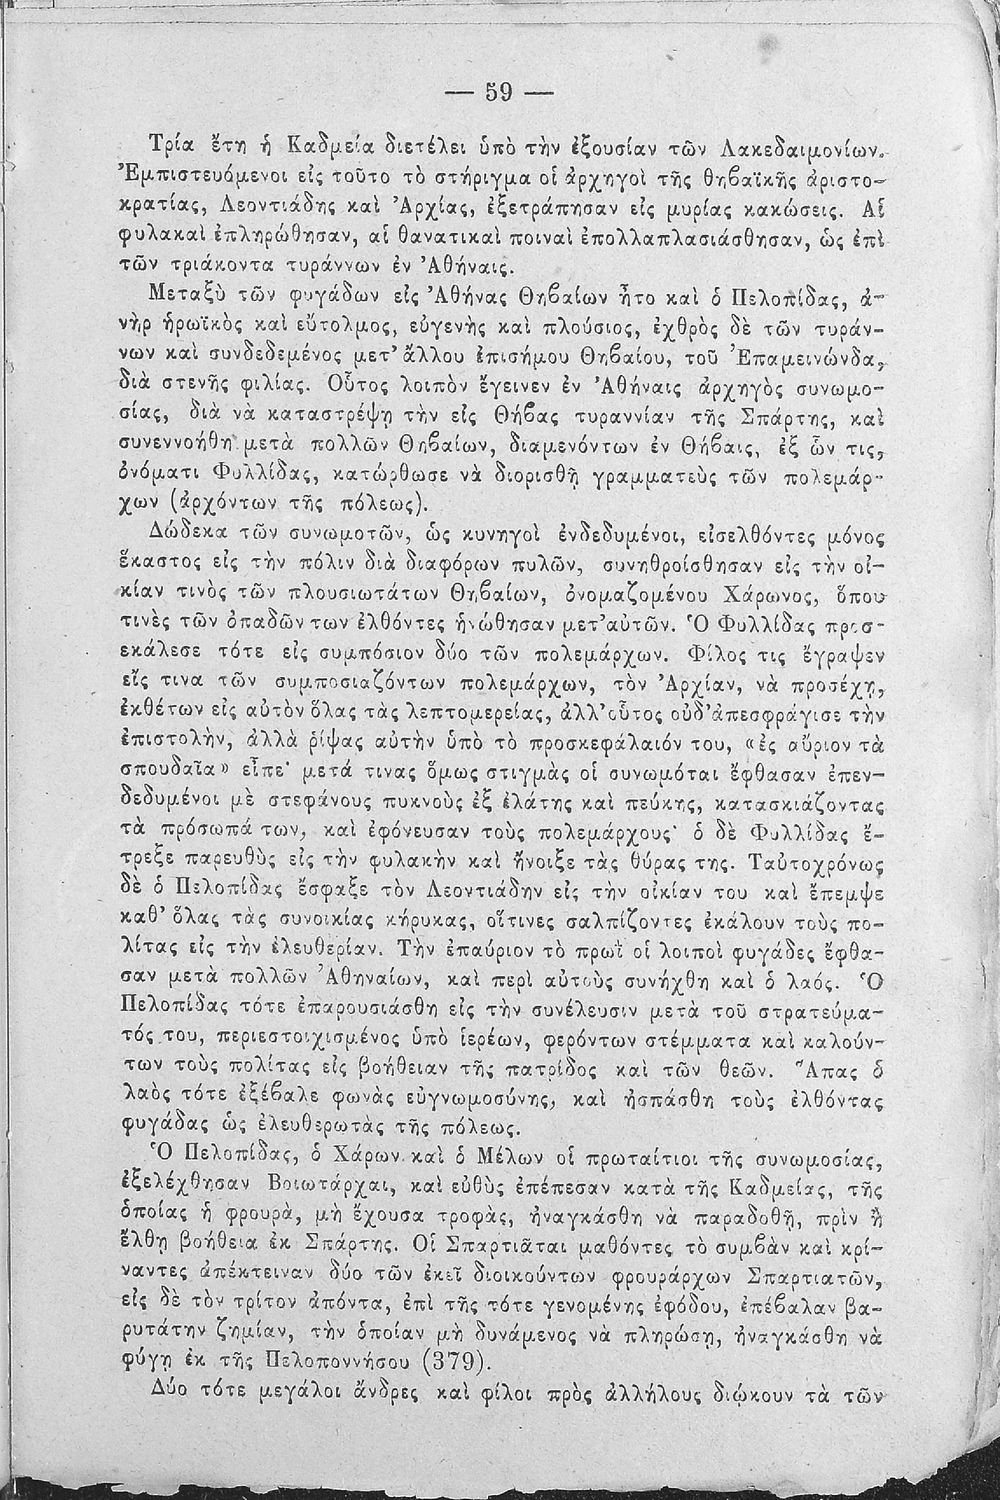 — 59 —
Τρία ἔτη ἡ Καδμεία διετέλει ὑπὸ τὴν ἐξουσίαν τῶν Λακεδαιμονίων.
Ἐμπιστευόμενοι εἰς τοῦτο τὸ στήριγμα οἱ ἀρχηγοὶ τῆς θηβαϊκῆς ἀριστο-
κρατίας, Λεοντιάδης καὶ Ἀρχίας, ἐξετράπησαν εἰς μυρίας κακώσεις. Αἱ
φυλακαὶ ἐπληρώθησαν, αἱ θανατικαὶ ποιναὶ ἐπολλαπλασιάσθησαν, ὡς ἐπὶ
τῶν τριάκοντα τυράννων ἐν Ἀθήναις.
Μεταξὺ τῶν φυγάδων εἰς Ἀθήνας Θηβαίων ἦτο καὶ ὁ Πελοπίδας, ἀ-
νὴρ ἡρωϊκὸς καὶ εὔτολμος, εὐγενὴς καὶ πλούσιος, ἐχθρὸς δὲ τῶν τυράν-
νων καὶ συνδεδεμένος μετ' ἄλλου ἐπισήμου Θηβαίου, τοῦ Ἐπαμεινώνδα,
διὰ στενῆς φιλίας. Οὗτος λοιπὸν ἔγεινεν ἐν Ἀθήναις ἀρχηγὸς συνωμο-
σίας, διὰ νὰ καταστρέψῃ τὴν εἰς Θήβας τυραννίαν τῆς Σπάρτης, καὶ
συνεννοήθη μετὰ πολλῶν Θηβαίων, διαμενόντων ἐν Θήβαις, ἐξ ὧν τις,
ὀνόματι Φυλλίδας, κατώρθωσε νὰ διορισθῇ γραμματεὺς τῶν πολεμάρ-
χων (ἀρχόντων τῆς πόλεως).
Δώδεκα τῶν συνωμοτῶν, ὡς κυνηγοὶ ἐνδεδυμένοι, εἰσελθόντες μόνος
ἕκαστος εἰς τὴν πόλιν διὰ διαφόρων πυλῶν, συνηθροίσθησαν εἰς τὴν οἰ-
κίαν τινὸς τῶν πλουσιωτάτων Θηβαίων, ὀνομαζομένου Χάρωνος, ὅπου
τινὲς τῶν ὀπαδῶν των ἐλθόντες ἡνώθησαν μετ' αὐτῶν. Ὁ Φυλλίδας προσ-
εκάλεσε τότε εἰς συμπόσιον δύο τῶν πολεμάρχων. Φίλος τις ἔγραψεν
εἴς τινα τῶν συμποσιαζόντων πολεμάρχων, τὸν Ἀρχίαν, νὰ προσέχῃ,
ἐκθέτων εἰς αὐτὸν ὅλας τὰς λεπτομερείας, ἀλλ' οὗτος οὐδ' ἀπεσφράγισε τὴν
ἐπιστολὴν, ἀλλὰ ῥίψας αὐτὴν ὑπὸ τὸ προσκεφάλαιόν του, «ἐς αὔριον τὰ
σπουδαῖα» εἶπε· μετά τινας ὅμως στιγμὰς οἱ συνωμόται ἔφθασαν ἐπεν-
δεδυμένοι μὲ στεφάνους πυκνοὺς ἐξ ἐλάτης καὶ πεύκης, κατασκιάζοντας
τὰ πρόσωπά των, καὶ ἐφόνευσαν τοὺς πολεμάρχους· ὁ δὲ Φυλλίδας ἔ-
τρεξε παρευθὺς εἰς τὴν φυλακὴν καὶ ἤνοιξε τὰς θύρας της. Ταὐτοχρόνως
δὲ ὁ Πελοπίδας ἔσφαξε τὸν Λεοντιάδην εἰς τὴν οἰκίαν του καὶ ἔπεμψε
καθ' ὅλας τὰς συνοικίας κήρυκας, οἵτινες σαλπίζοντες ἐκάλουν τοὺς πο-
λίτας εἰς τὴν ἐλευθερίαν. Τὴν ἐπαύριον τὸ πρωῒ οἱ λοιποὶ φυγάδες ἔφθα-
σαν μετὰ πολλῶν Ἀθηναίων, καὶ περὶ αὐτοὺς συνήχθη καὶ ὁ λαός. Ὁ
Πελοπίδας τότε ἐπαρουσιάσθη εἰς τὴν συνέλευσιν μετὰ τοῦ στρατεύμα-
τός του, περιεστοιχισμένος ὑπὸ ἱερέων, φερόντων στέμματα καὶ καλούν-
των τοὺς πολίτας εἰς βοήθειαν τῆς πατρίδος καὶ τῶν θεῶν. Ἅπας ὁ
λαὸς τότε ἐξέβαλε φωνὰς εὐγνωμοσύνης, καὶ ἠσπάσθη τοὺς ἐλθόντας
φυγάδας ὡς ἐλευθερωτὰς τῆς πόλεως.
Ὁ Πελοπίδας, ὁ Χάρων καὶ ὁ Μέλων οἱ πρωταίτιοι τῆς συνωμοσίας,
ἐξελέχθησαν Βοιωτάρχαι, καὶ εὐθὺς ἐπέπεσαν κατὰ τῆς Καδμείας, τῆς
ὁποίας ἡ φρουρὰ, μὴ ἔχουσα τροφὰς, ἠναγκάσθη νὰ παραδοθῇ, πρὶν ἢ
ἔλθῃ βοήθεια ἐκ Σπάρτης. Οἱ Σπαρτιᾶται μαθόντες τὸ συμβὰν καὶ κρί-
ναντες ἀπέκτειναν δύο τῶν ἐκεῖ διοικούντων φρουράρχων Σπαρτιατῶν,
εἰς δὲ τὸν τρίτον ἀπόντα, ἐπὶ τῆς τότε γενομένης ἐφόδου, ἐπέβαλαν βα-
ρυτάτην ζημίαν, τὴν ὁποίαν μὴ δυνάμενος νὰ πληρώσῃ, ἠναγκάσθη νὰ
φύγῃ ἐκ τῆς Πελοποννήσου (379).
Δύο τότε μεγάλοι ἄνδρες καὶ φίλοι πρὸς ἀλλήλους διῴκουν τὰ τῶν